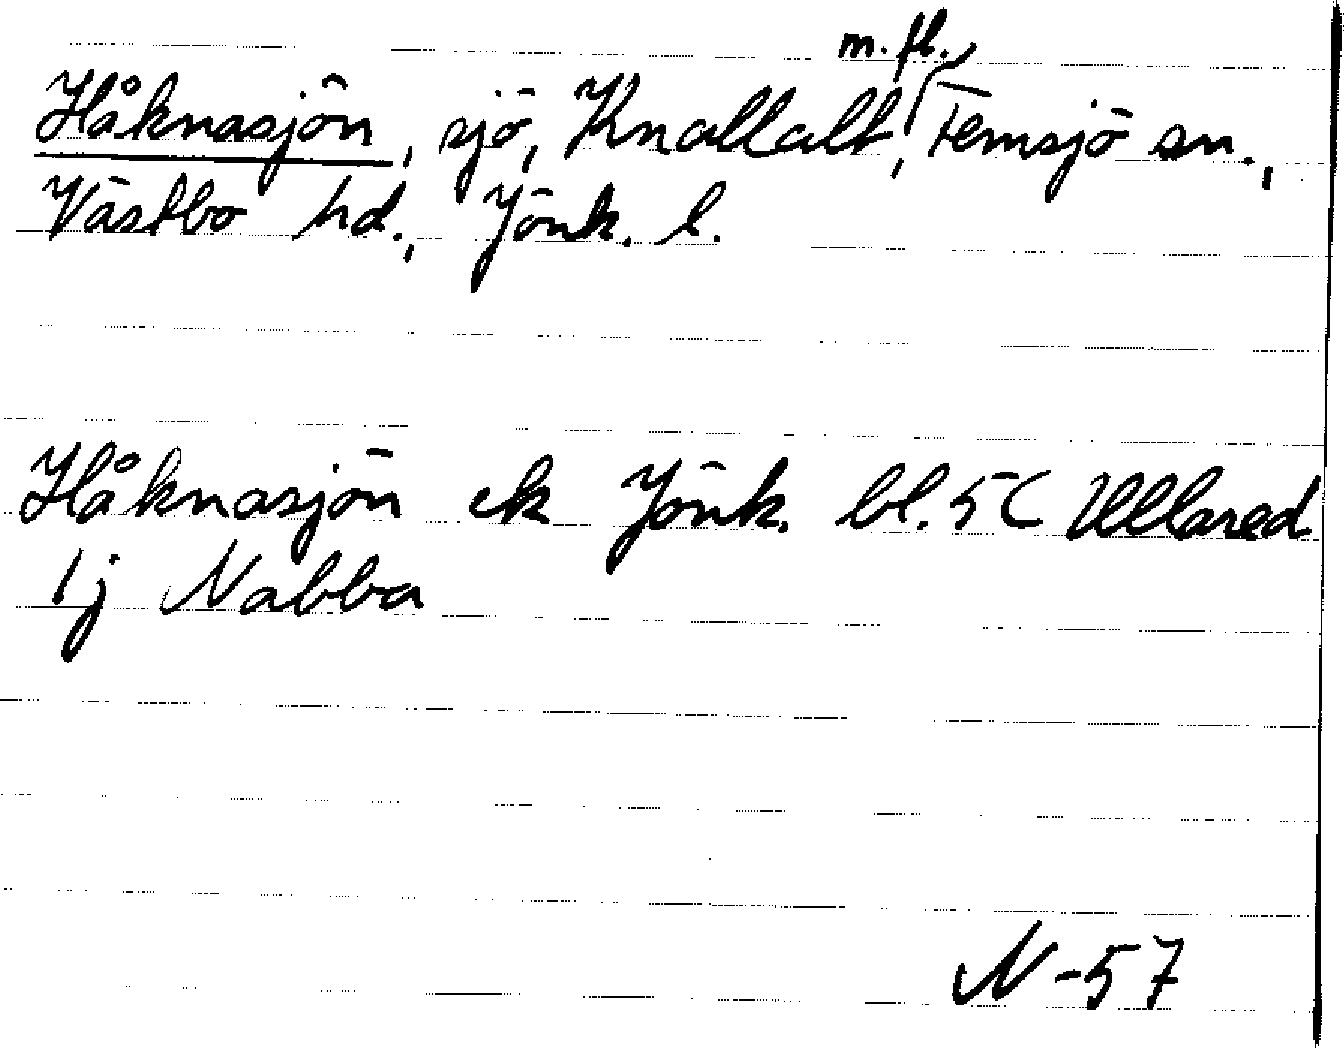 m. fl.,
Håknasjön, sjö, Knallalt, Femsjö sn.,
Västbo hd., Jönk. l.
Håknasjön ek Jönk. bl. 5C Ullared
1j Nabba
N-57